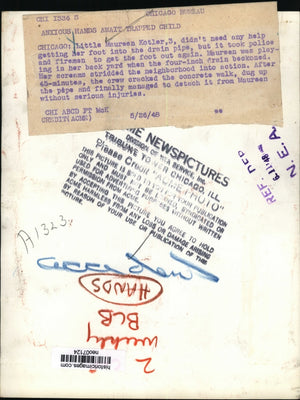 CHI 1536 S CHICAGO BUREAU
ANXIOUS HANDS AWAIT TRAPPED CHILD
CHICAGO: Little Maureen Kotler,3, didn't need any help
getting her foot into the drain pipe, but it took police
and firemen to get the foot out again. Maureen was play-
ing in her back yard when the four-inch drain beckoned.
Her screams stridded the neighborhood into action. After
45-minutes, the crew cracked the concrete walk, dug up
the pipe and finally managed to detach it from Maureen
without serious injuries.
CHI ABCD FT
CREDIT(ACME) 5/26/48
NEWSPICTURES
DIVISION OF NEA SERVICE, INC.
TRIBUNE TOWER CHICAGO, ILL.
Please Credit "ACME PHOTO"
THIS PICTURE IS SOLD TO YOU FOR YOUR PUBLICATION
ONLY AND MUST NOT BE LOANED, SYNDICATED OR
USED FOR ADVERTISING PURPOSES WITHOUT WRITTEN
PERMISSION FROM ACME.
BY ACCEPTING THIS PICTURE YOU AGREE TO HOLD
ACME HARMLESS FROM ANY LOSS OR DAMAGE ARISING
BY REASON OF YOUR USE OR PUBLICATION OF THIS
PICTURE.
REF. DEP
N E A
A1323
accident
HANDS
BLB
weekly
2
historicimages.com
neo07124